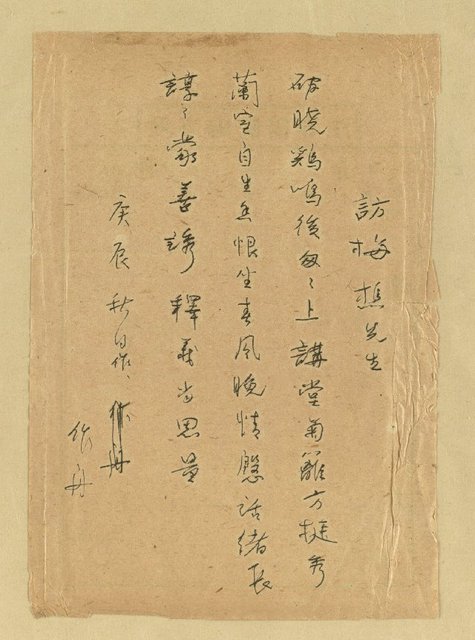 訪梅樵先生
破曉鷄鳴後匆〻上講堂菊籬方挺秀
蘭室自生香恨坐春風晚情慇話緒長
諄〻蒙善誘釋義当思量
庚辰秋日作、
作舟